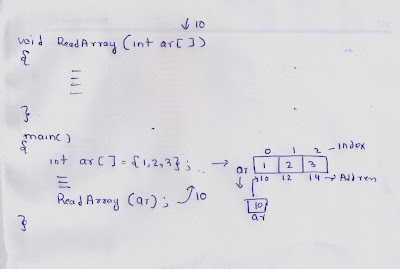 ↓ 10
void ReadArray (int ar[])
{
}
main()
{
0 1 2 - Index
int ar[] = {1,2,3}; → ar 1 2 3
10 12 14 → Address
ReadArray (ar); 10
10
ar
}